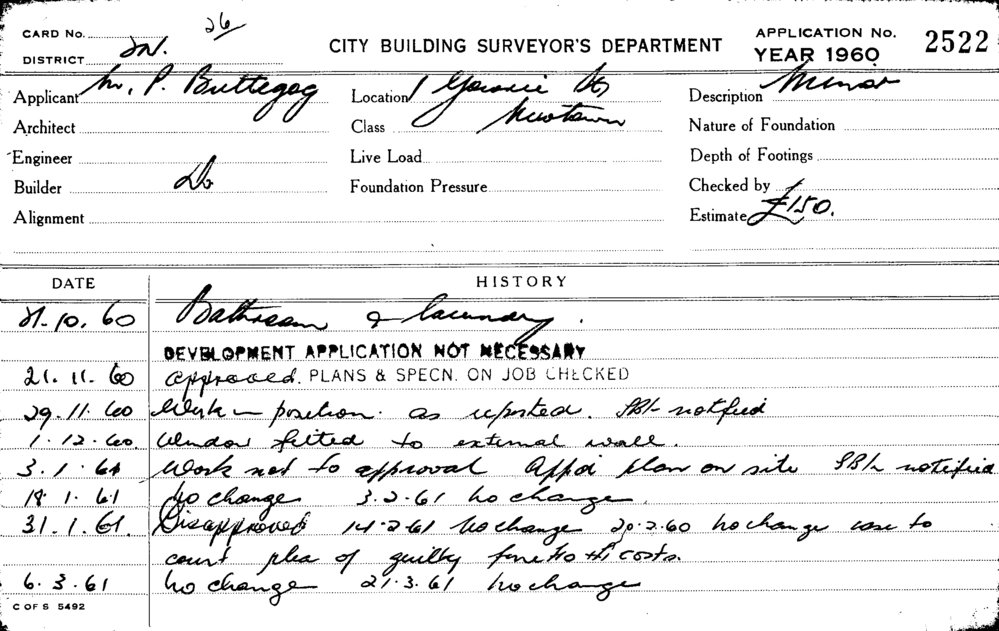 26
CARD No.
DISTRICT
CITY BUILDING SURVEYOR'S DEPARTMENT
APPLICATION No.
YEAR 1960
2522
Applicant Mr. P. Buttegeg
Location 1 Gowrie St
Description Minor
Architect
Class Newtown
Nature of Foundation
Engineer
Live Load
Depth of Footings
Builder Do
Foundation Pressure
Checked by
Alignment
Estimate £150.
DATE HISTORY
21.10.60 Bathroom & laundry.
DEVELOPMENT APPLICATION NOT NECESSARY
21.11.60 approved. PLANS & SPECN. ON JOB CHECKED
29.11.60 Work in position as reported. notified
1.12.60 Window fitted to external wall.
3.1.61 Work not to approval Appd plan on site notified
18.1.61 No change 3.2.61 No change
31.1.61. Disapproved 14.2.61 No change 20.2.60 No change case to
court plea of guilty fine costs.
6.3.61 No change 21.3.61 No change
C OF S 5492